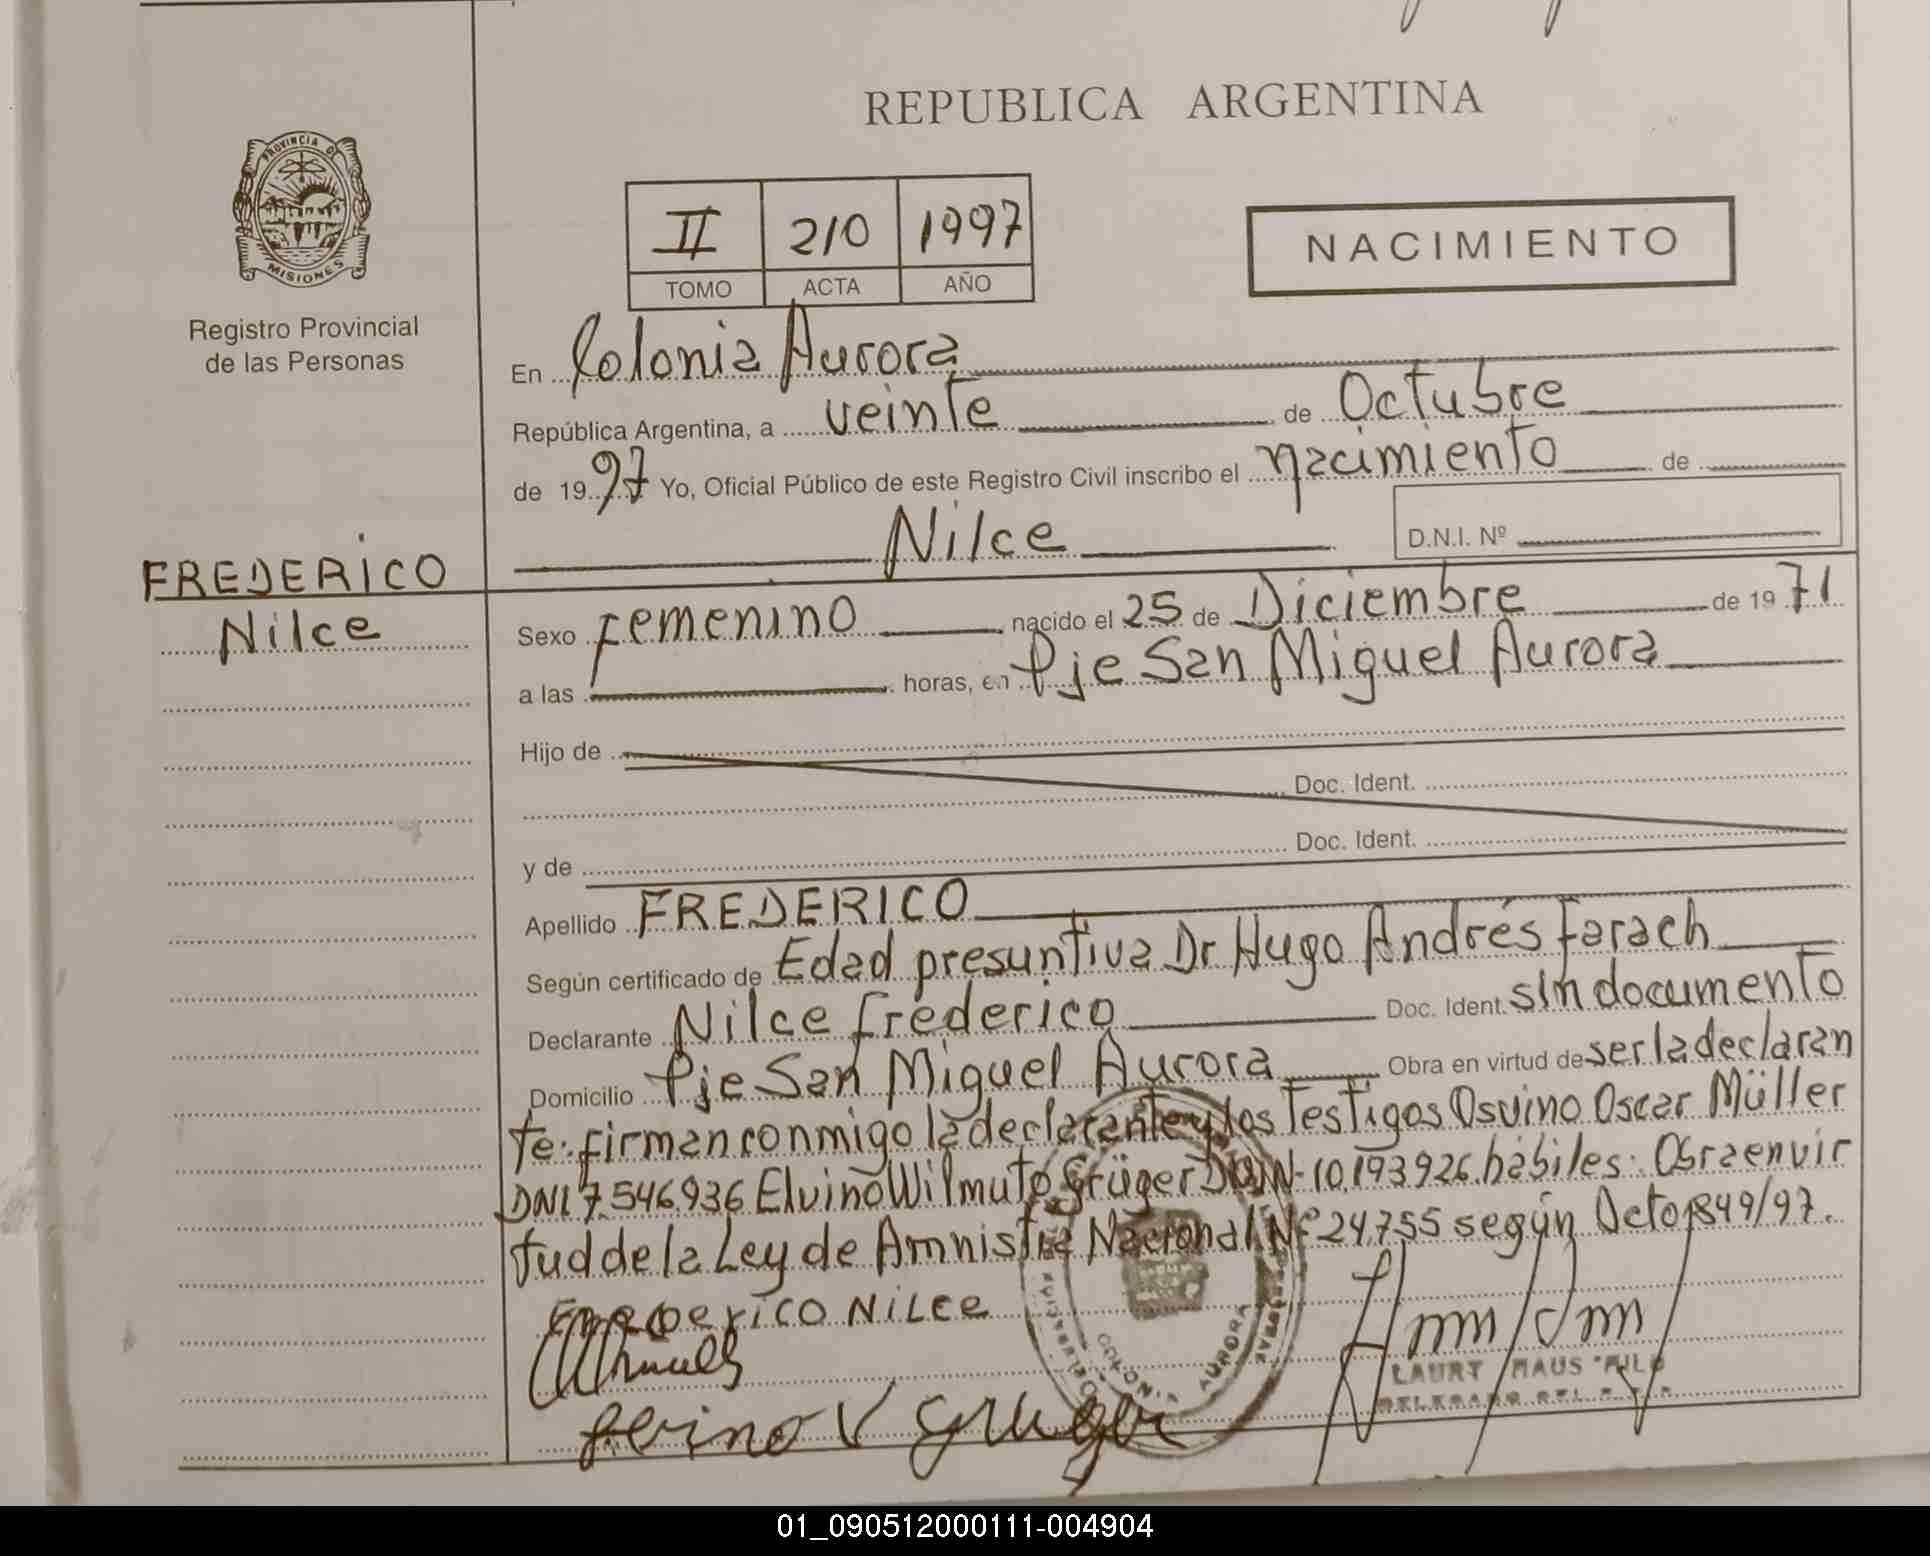 REPUBLICA ARGENTINA
PROVINCIA DE
MISIONES
Registro Provincial
de las Personas
II 210 1997
TOMO ACTA AÑO
NACIMIENTO
En Colonia Aurora
República Argentina, a veinte de Octubre
de 1997 Yo, Oficial Público de este Registro Civil inscribo el nacimiento de
Nilce D.N.I. Nº
FREDERICO
Nilce
Sexo Femenino nacido el 25 de Diciembre de 1971
a las horas, en Pje San Miguel Aurora
Hijo de
Doc. Ident.
y de Doc. Ident.
Apellido FREDERICO
Según certificado de Edad presuntiva Dr Hugo Andrés Farach
Declarante Nilce Frederico Doc. Ident. sin documento
Domicilio Pje San Miguel Aurora Obra en virtud de ser la declaran
te. firman conmigo la declarante y los Testigos Osvino Oscar Müller
DNI 7.546.936 Elvino Wilmuto Grüger DNI N- 10.193926. hábiles. Obra en vir
tud de la Ley de Amnistia Nacional Nº 24.755 según Dcto 849/97.
FREDERICO NILCE
AURORA
LAURY HAUS